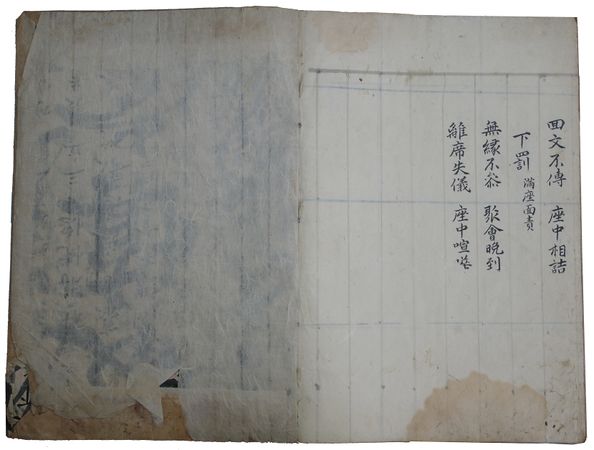 回文不傳 座中相詰
下罰 滿座面責
無緣不叅 聚會晩到
離席失儀 座中喧